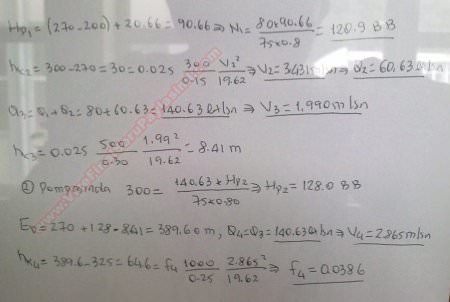 Hp₁ = (270-200) + 20.66 = 90.66 ⇒ N₁ = 80x90.66 / 75x0.8 = 120.9 BB
hk₂ = 300-270 = 30 = 0.025 300/0.15 V₂²/19.62 ⇒ V₂ = 3.431 m/sn ⇒ Q₂ = 60.63 lt/sn
Q₃ = Q₁ + Q₂ = 80 + 60.63 = 140.63 lt/sn ⇒ V₃ = 1.990 m/sn
hk₃ = 0.025 500/0.30 1.99²/19.62 = 8.41 m
② Pompasında 300 = 140.63 * Hp₂ / 75x0.80 ⇒ Hp₂ = 128.0 BB
E₀ = 270 + 128 - 8.41 = 389.60 m, Q₄ = Q₃ = 140.63 lt/sn ⇒ V₄ = 2.865 m/sn
hk₄ = 389.6 - 325 = 64.6 = f₄ 1000/0.25 2.865²/19.62 ⇒ f₄ = 0.0386